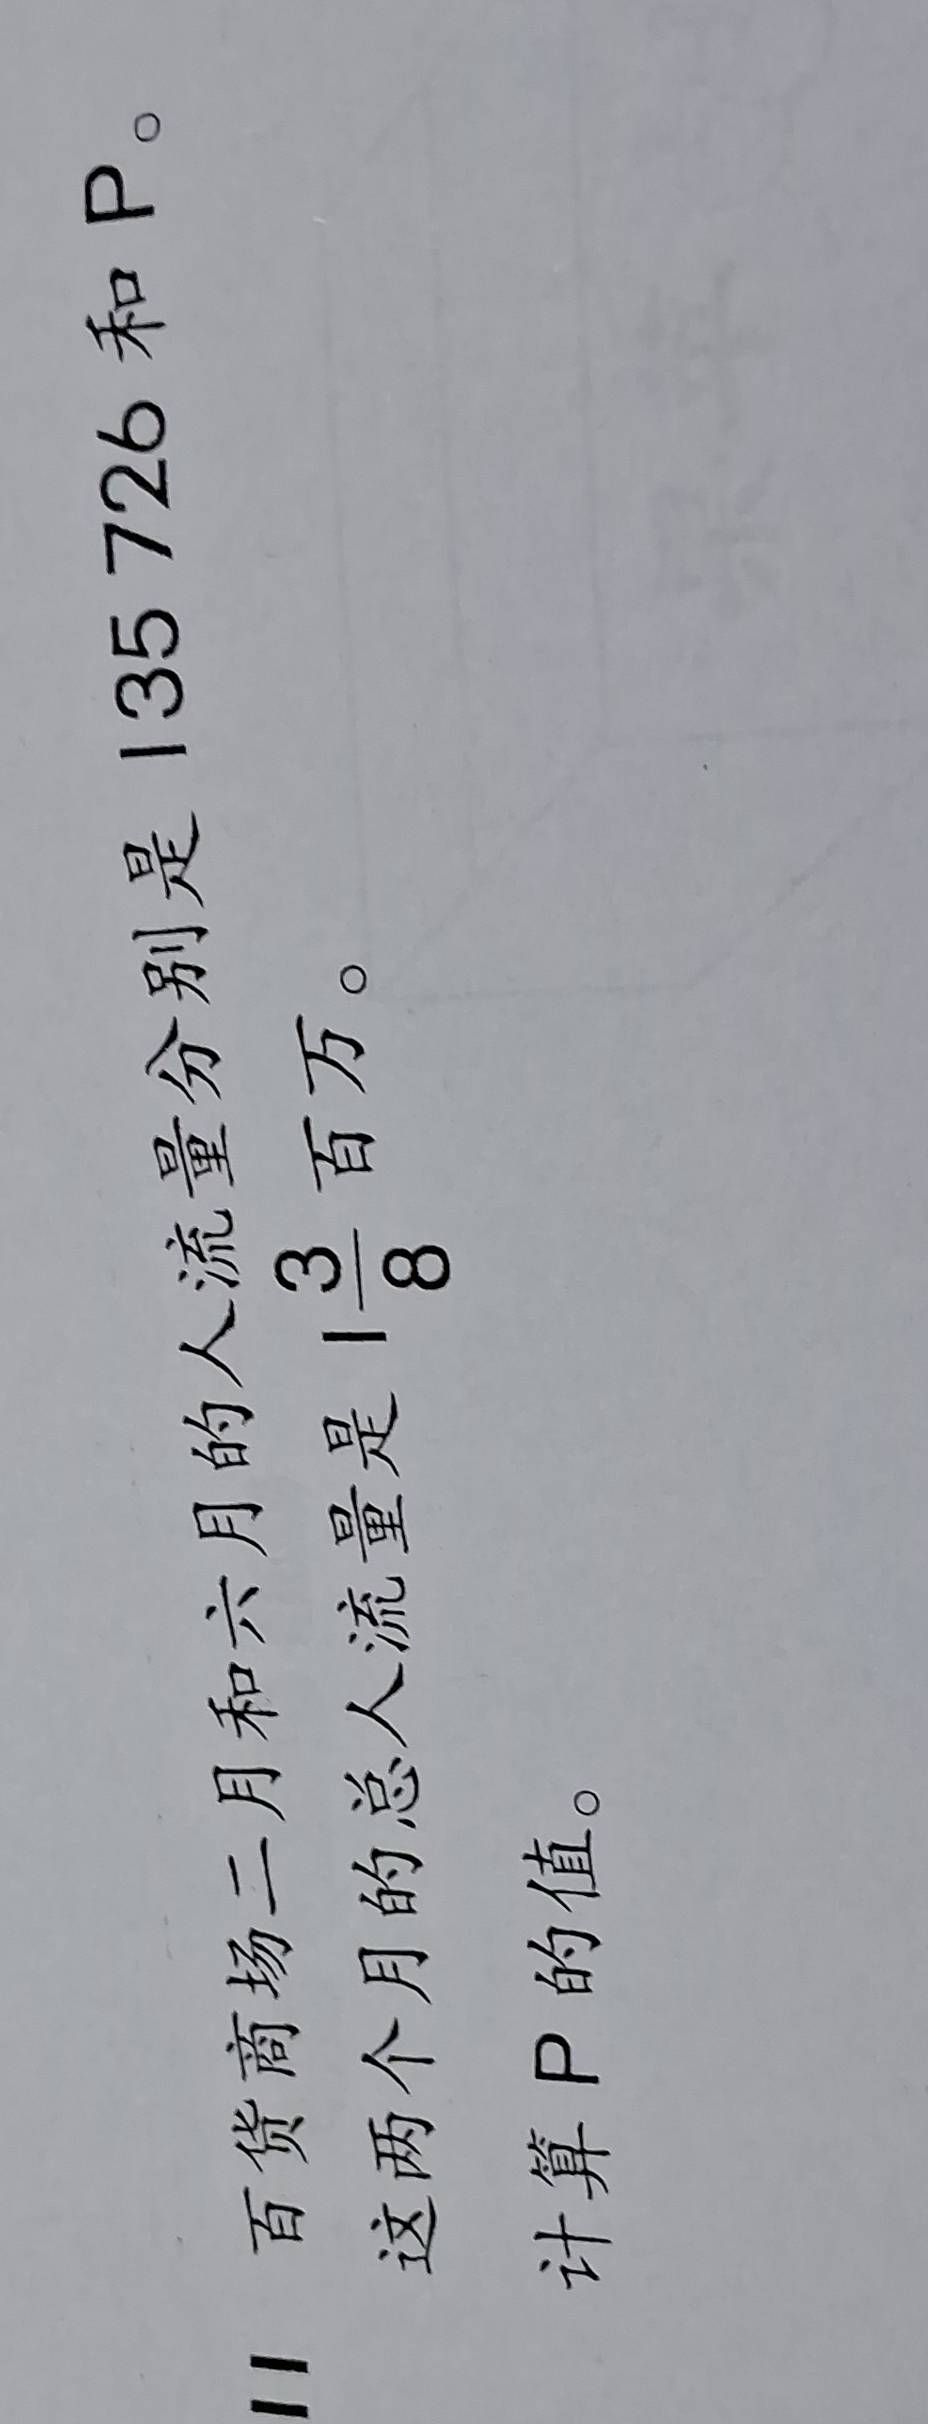 11 百货商场二月和六月的人流量分别是 135 726 和 P。
这两个月的总人流量是 1 3/8 百万。
计算 P 的值。